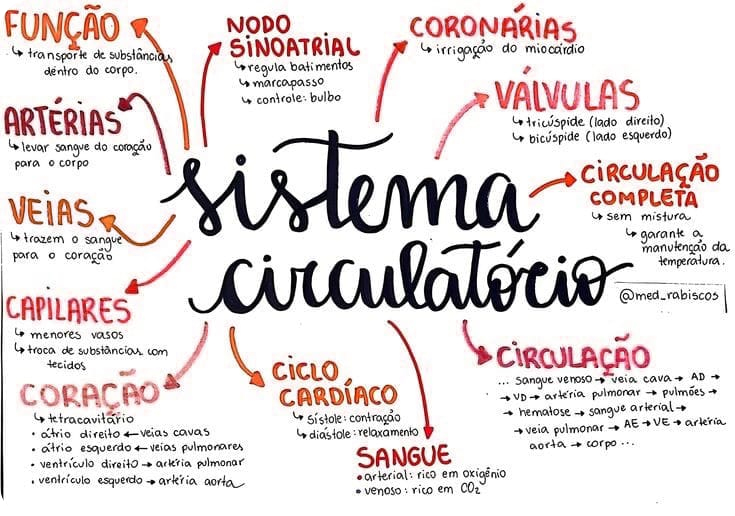 FUNÇÃO
↳ transporte de substâncias
dentro do corpo.
NODO
SINOATRIAL
↳ regula batimentos
↳ marcapasso
↳ controle: bulbo
CORONÁRIAS
↳ irrigação do miocárdio
VÁLVULAS
↳ tricúspide (lado direito)
↳ bicúspide (lado esquerdo)
ARTÉRIAS
↳ levar sangue do coração
para o corpo
sistema
circulatório
CIRCULAÇÃO
COMPLETA
↳ sem mistura
↳ garante a
manutenção da
temperatura.
VEIAS
↳ trazem o sangue
para o coração
@med_rabiscos
CAPILARES
↳ menores vasos
↳ troca de substâncias com
tecidos
CORAÇÃO
↳ tetracavitário
• átrio direito ← veias cavas
• átrio esquerdo ← veias pulmonares
• ventrículo direito → artéria pulmonar
• ventrículo esquerdo → artéria aorta
CICLO
CARDÍACO
↳ sístole: contração
↳ diástole: relaxamento
SANGUE
• arterial: rico em oxigênio
• venoso: rico em CO₂
CIRCULAÇÃO
... sangue venoso → veia cava → AD →
→ VD → artéria pulmonar → pulmões →
→ hematose → sangue arterial →
→ veia pulmonar → AE → VE → artéria
aorta → corpo ...